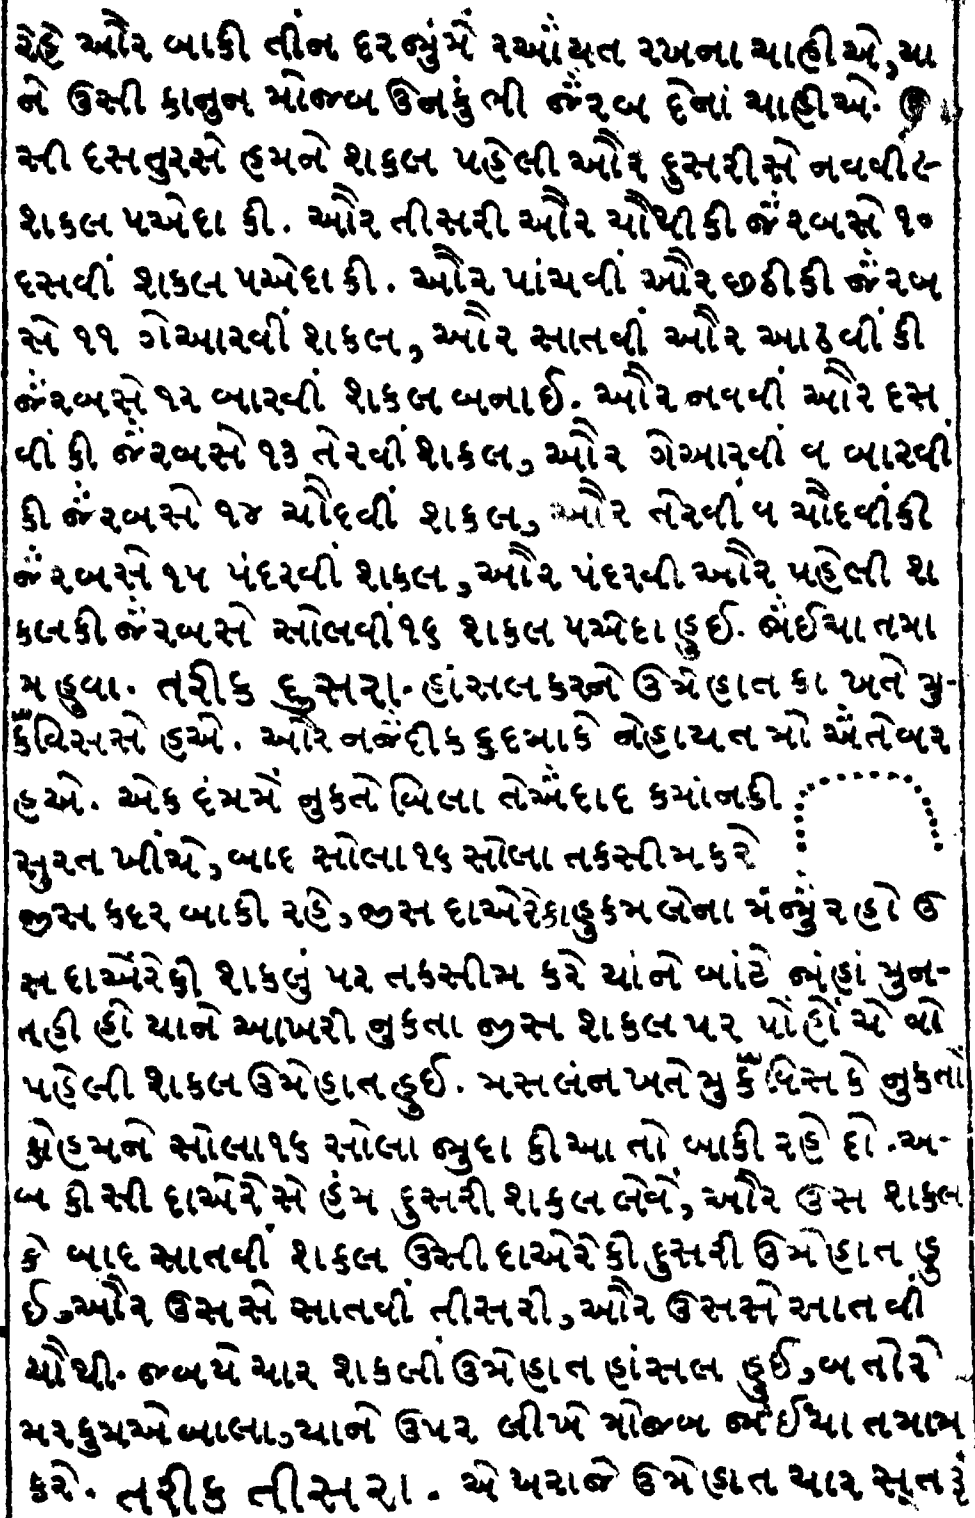 રેહે ઔર બાકી તીંન દરજુંમેં રઆંયત રખના ચાહીએ, યા
ને ઉસી કાનુન મોજબ ઉનકું ભી જંરબ દેનાં ચાહીએ. ઉ
સી દસતુરસે હમને શકલ પહેલી ઔર દુસરીસે નવવી૯
શકલ પએદા કી. ઔર તીસરી ઔર ચૌથીકી જંરબસે ૧૦
દસવીં શકલ પએદા કી. ઔર પાંચવીં ઔર છઠીકી જંરબ
સે ૧૧ ગેઆરવીં શકલ, ઔર સાતવીં ઔર આઠવીં કી
જંરબસે ૧૨ બારવીં શકલ બનાઈ. ઔર નવવીં ઔર દસ
વીં કી જંરબસે ૧૩ તેરવીં શકલ, ઔર ગેઆરવીં વ બારવીં
કી જંરબસે ૧૪ ચૌદવીં શકલ, ઔર તેરવીં વ ચૌદવીંકી
જંરબસે ૧૫ પંદરવીં શકલ, ઔર પંદરવી ઔર પહેલી શ
કલકી જંરબસે સોલવીં ૧૬ શકલ પએદા હુઈ. જંઈચા તમા
મ હુવા. તરીક દુસરા. હાંસલ કરને ઉમેહાત કા ખતે મુ-
કંવિસસે હએ. ઔર નજંદીક કુદમાકે નેહાયત મો અંતેબર
હએ. એક દંમમેં નુકતે બિલા તેઅંદાદ કમાંનકી
સુરત ખીંચે, બાદ સોલા ૧૬ સોલા તકસીમ કરે
જીસ કદર બાકી રહે, જીસ દાએરેકા હુકમ લેના મંજુંર હો ઉ
સ દાએંરેકી શકલું પર તકસીમ કરે યાંને બાંટે જંહાં મુન-
તહી હો યાને આખરી નુકતા જીસ શકલ પર પોંહોંચે વો
પહેલી શકલ ઉમેહાત હુઈ. મસલંન ખતે મુકંવિસ કે નુકતોં
કોહમને સોલા ૧૬ સોલા જુદા કીઆ તો બાકી રહે દો. અ-
બ કીસી દાએરેસે હંમ દુસરી શકલ લેવેં, ઔર ઉસ શકલ
કે બાદ સાતવીં શકલ ઉસી દાએરેકી દુસરી ઉમેહાત હુ
ઈ, ઔર ઉસસે સાતવીં તીસરી, ઔર ઉસસે સાતવીં
ચૌથી. જબયે ચાર શકલીં ઉમેહાત હાંસલ હુઈ, બતોરે
મરકુમએ બાલા, યાને ઉપર લીખે મોજબ જંઈચા તમામ
કરે. તરીક તીસરા. એ ખરાજે ઉમેહાત ચાર સૂતરૂં